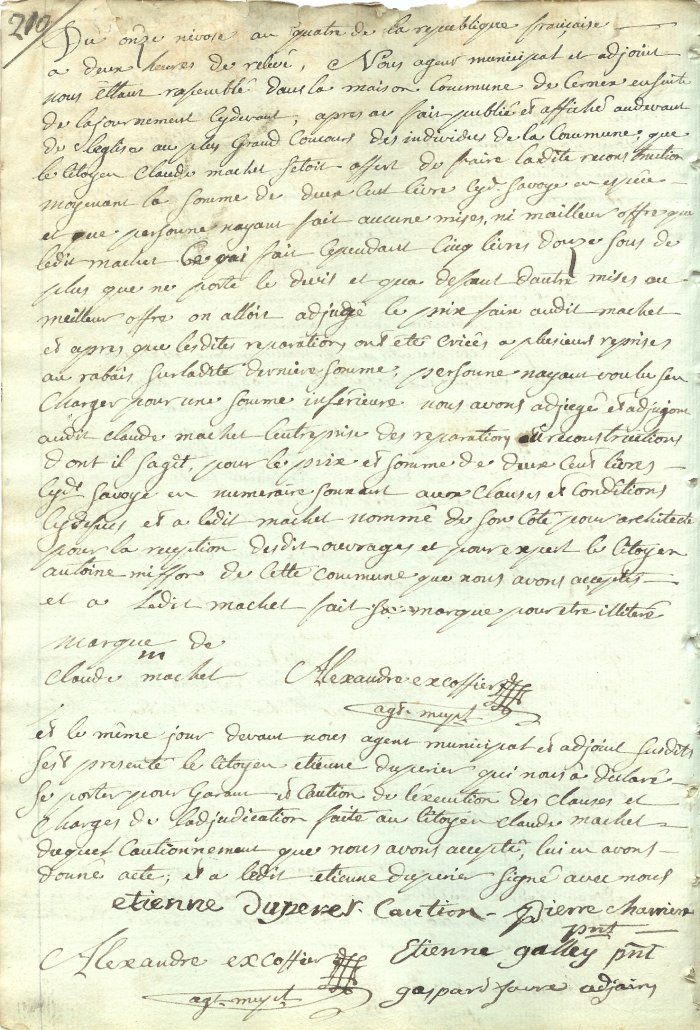 210
Du onze nivose an quatre de la republique française
a deux heures de relevé, Nous agent municipal et adjoint
nous étant rasemblé dans la maison Commune de Cernex ensuite
de lajournement cydevant, apres au fait publié et affiché audevant
de leglise au plus Grand Concours des individus de la Commune, que
le Citoyen Claude machet setoit offert de faire ladite reconstruction
moyenant la somme de deux Cent livre cyd. Savoye en espece
et que persoune nayant fait aucune mises, ni mailleur offre que
ledit machet fait Cependant Cinq livres douze sous de
plus que ne porte le devis et qua defaut dautre mises au
meilleur offre on alloit adjugé le prix fait audit machet
et apres que lesdites reparations ont été criées a plusieurs reprises
au rabais surladite derniere somme, personne nayant voulu sen
Charger pour une somme inférieure nous avons adjugé et adjugons
audit Claude machet lentreprise des reparations et reconstructions
dont il sagit, pour le prix et somme de deux Cent livres
cydt Savoye en numeraire sonnant aux Clauses et Conditions
cydessus et a ledit machet nommé de son Coté pour architecte
pour la reception desdit ouvrages et pour expert le Citoyen
antoine miffon de Cette Commune que nous avons acceptés
et a Ledit machet fait sa marque pour etre illiteré
marque de
m
Claude machet Alexandre excoffier
agt. mupl.
et le même jour devant nous agent municipal et adjoint susdits
sest presenté le Citoyen etienne duperier qui nous a déclaré
se porter pour Garant et Caution de léxecution des Clauses et
Charges de ladjudication faite au Citoyen Claude machet
duquel Cautionnement que nous avons accepté, lui en avons
donné acte, et a ledit etienne duperier signé avec nous
etienne Duperet Caution pierre charriere
pnt
Alexandre excoffier Etienne galley pnt
agt. mupl. gaspard favre adjoin